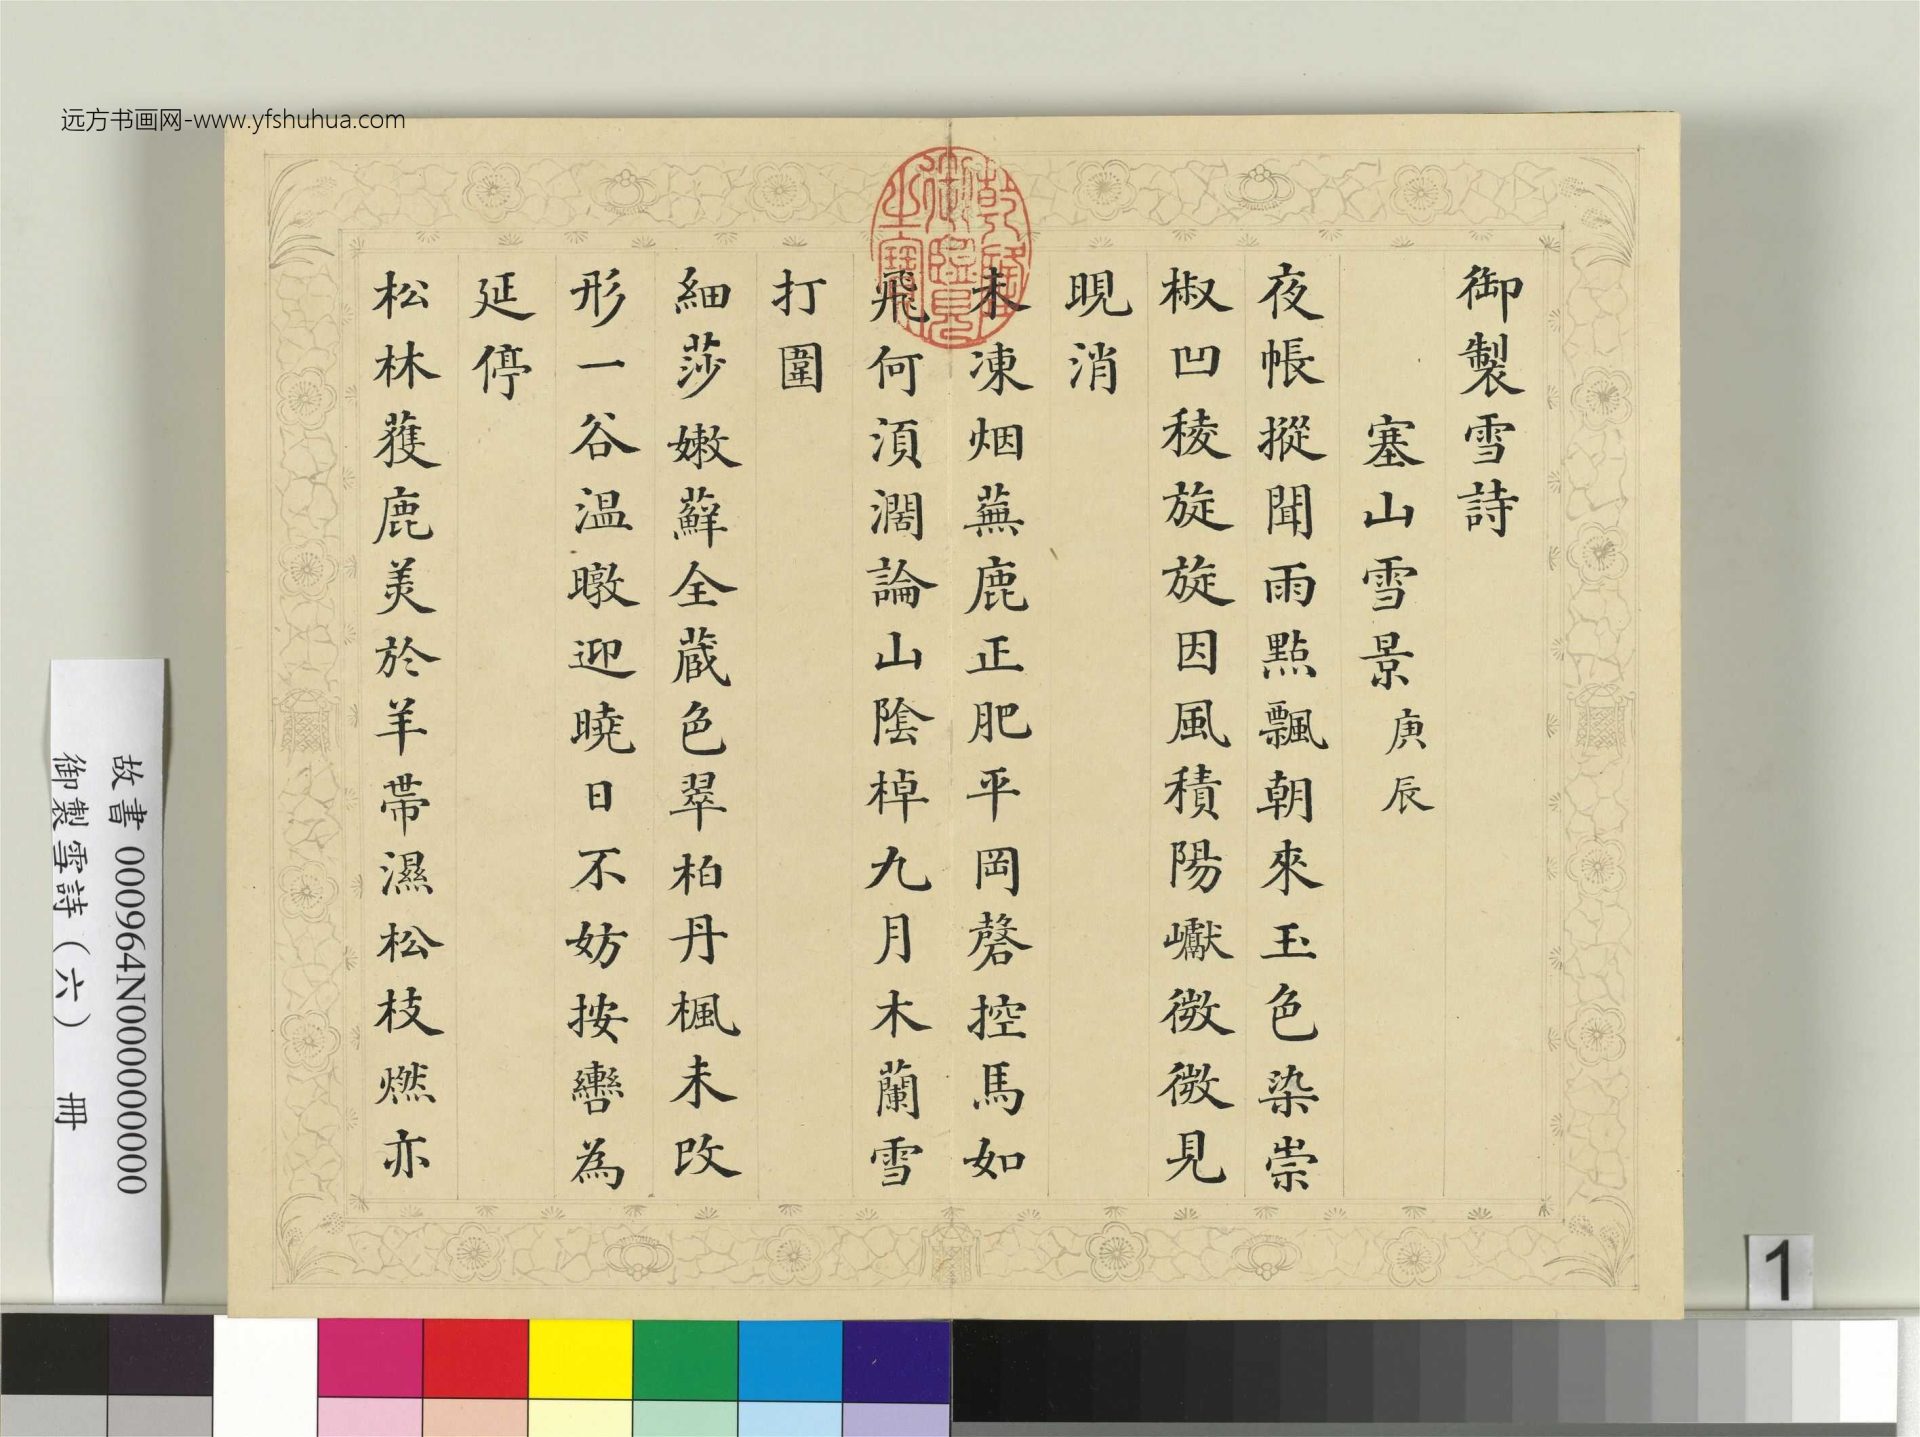 远方书画网-www.yfshuhua.com
御製雪詩
塞山雪景庚辰
夜帳摐聞雨點飄朝來玉色染崇
椒凹稜旋旋因風積陽巘微微見
晛消
未凍烟蕪鹿正肥平岡磬控馬如
飛何須濶論山陰棹九月木蘭雪
打圍
細莎嫩蘚全蔵色翠柏丹楓未改
形一谷温暾迎曉日不妨按轡為
延停
松林蒦鹿美於羊帶濕松枝燃亦
乾隆御覽之寶
故書 000964N000000000
御製雪詩（六） 冊
1